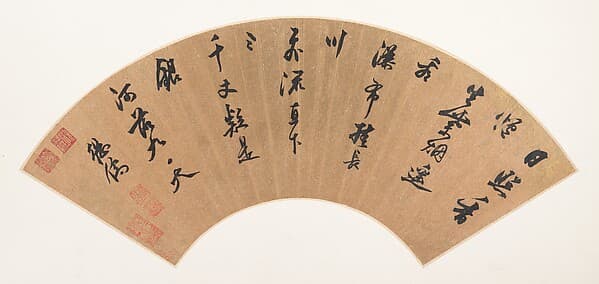 日照香
爐
生紫烟遙
看
瀑布挂長
川
飛流直下
三
千丈疑是
銀
河落九天
繼儒